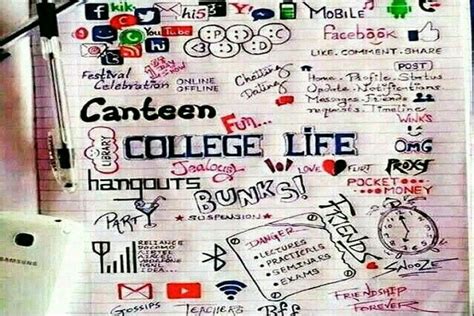 kik
hi5
MOBILE
You Tube
Facebook
LIKE. COMMENT. SHARE
POST
Festival
Celebration
ONLINE
OFFLINE
Chatting
Dating
Home - Profile. Status
Update. Notifications
Messages. Friends
requests. Timeline
Canteen
Fun...
WINK'S
LIBRARY
COLLEGE LIFE
OMG
Jealousy
LOVE
FLIRT
PROXY
hangouts
BUNKS!
POCKET
MONEY
PARTY
SUSPENSION
FRIENDS
RELIANCE
DOCOMO
AIRTEL
AIRCEL
VODAFONE
IDEA...
DANGER
LECTURES
PRACTICALS
SEMINARS
EXAMS
SNOOZE
SAMSUNG
Gossips
Teachers
Bff
FRIENDSHIP
FOREVER